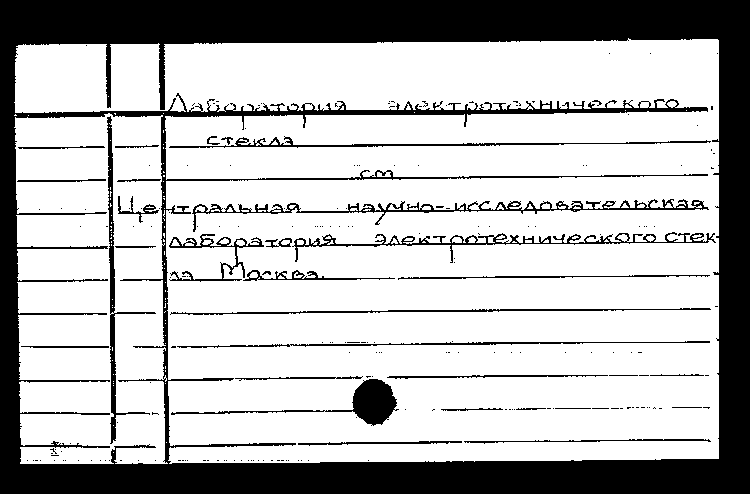 Лаборатория электротехнического
стекла
см
Центральная научно-исследовательская
лаборатория электротехнического стек-
ла Москва.